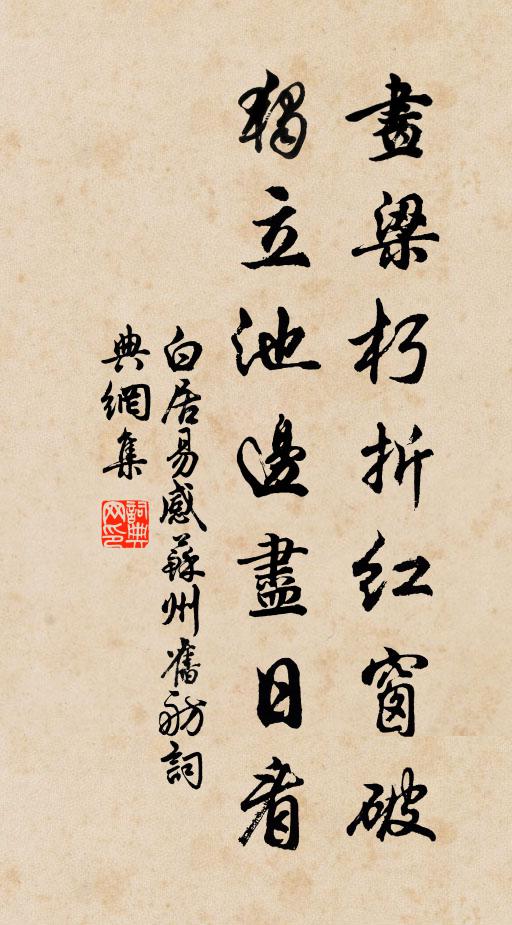 畫梁朽折紅窗破
獨立池邊盡日看
白居易感蘇州舊舫詞
典網集
詞典网印